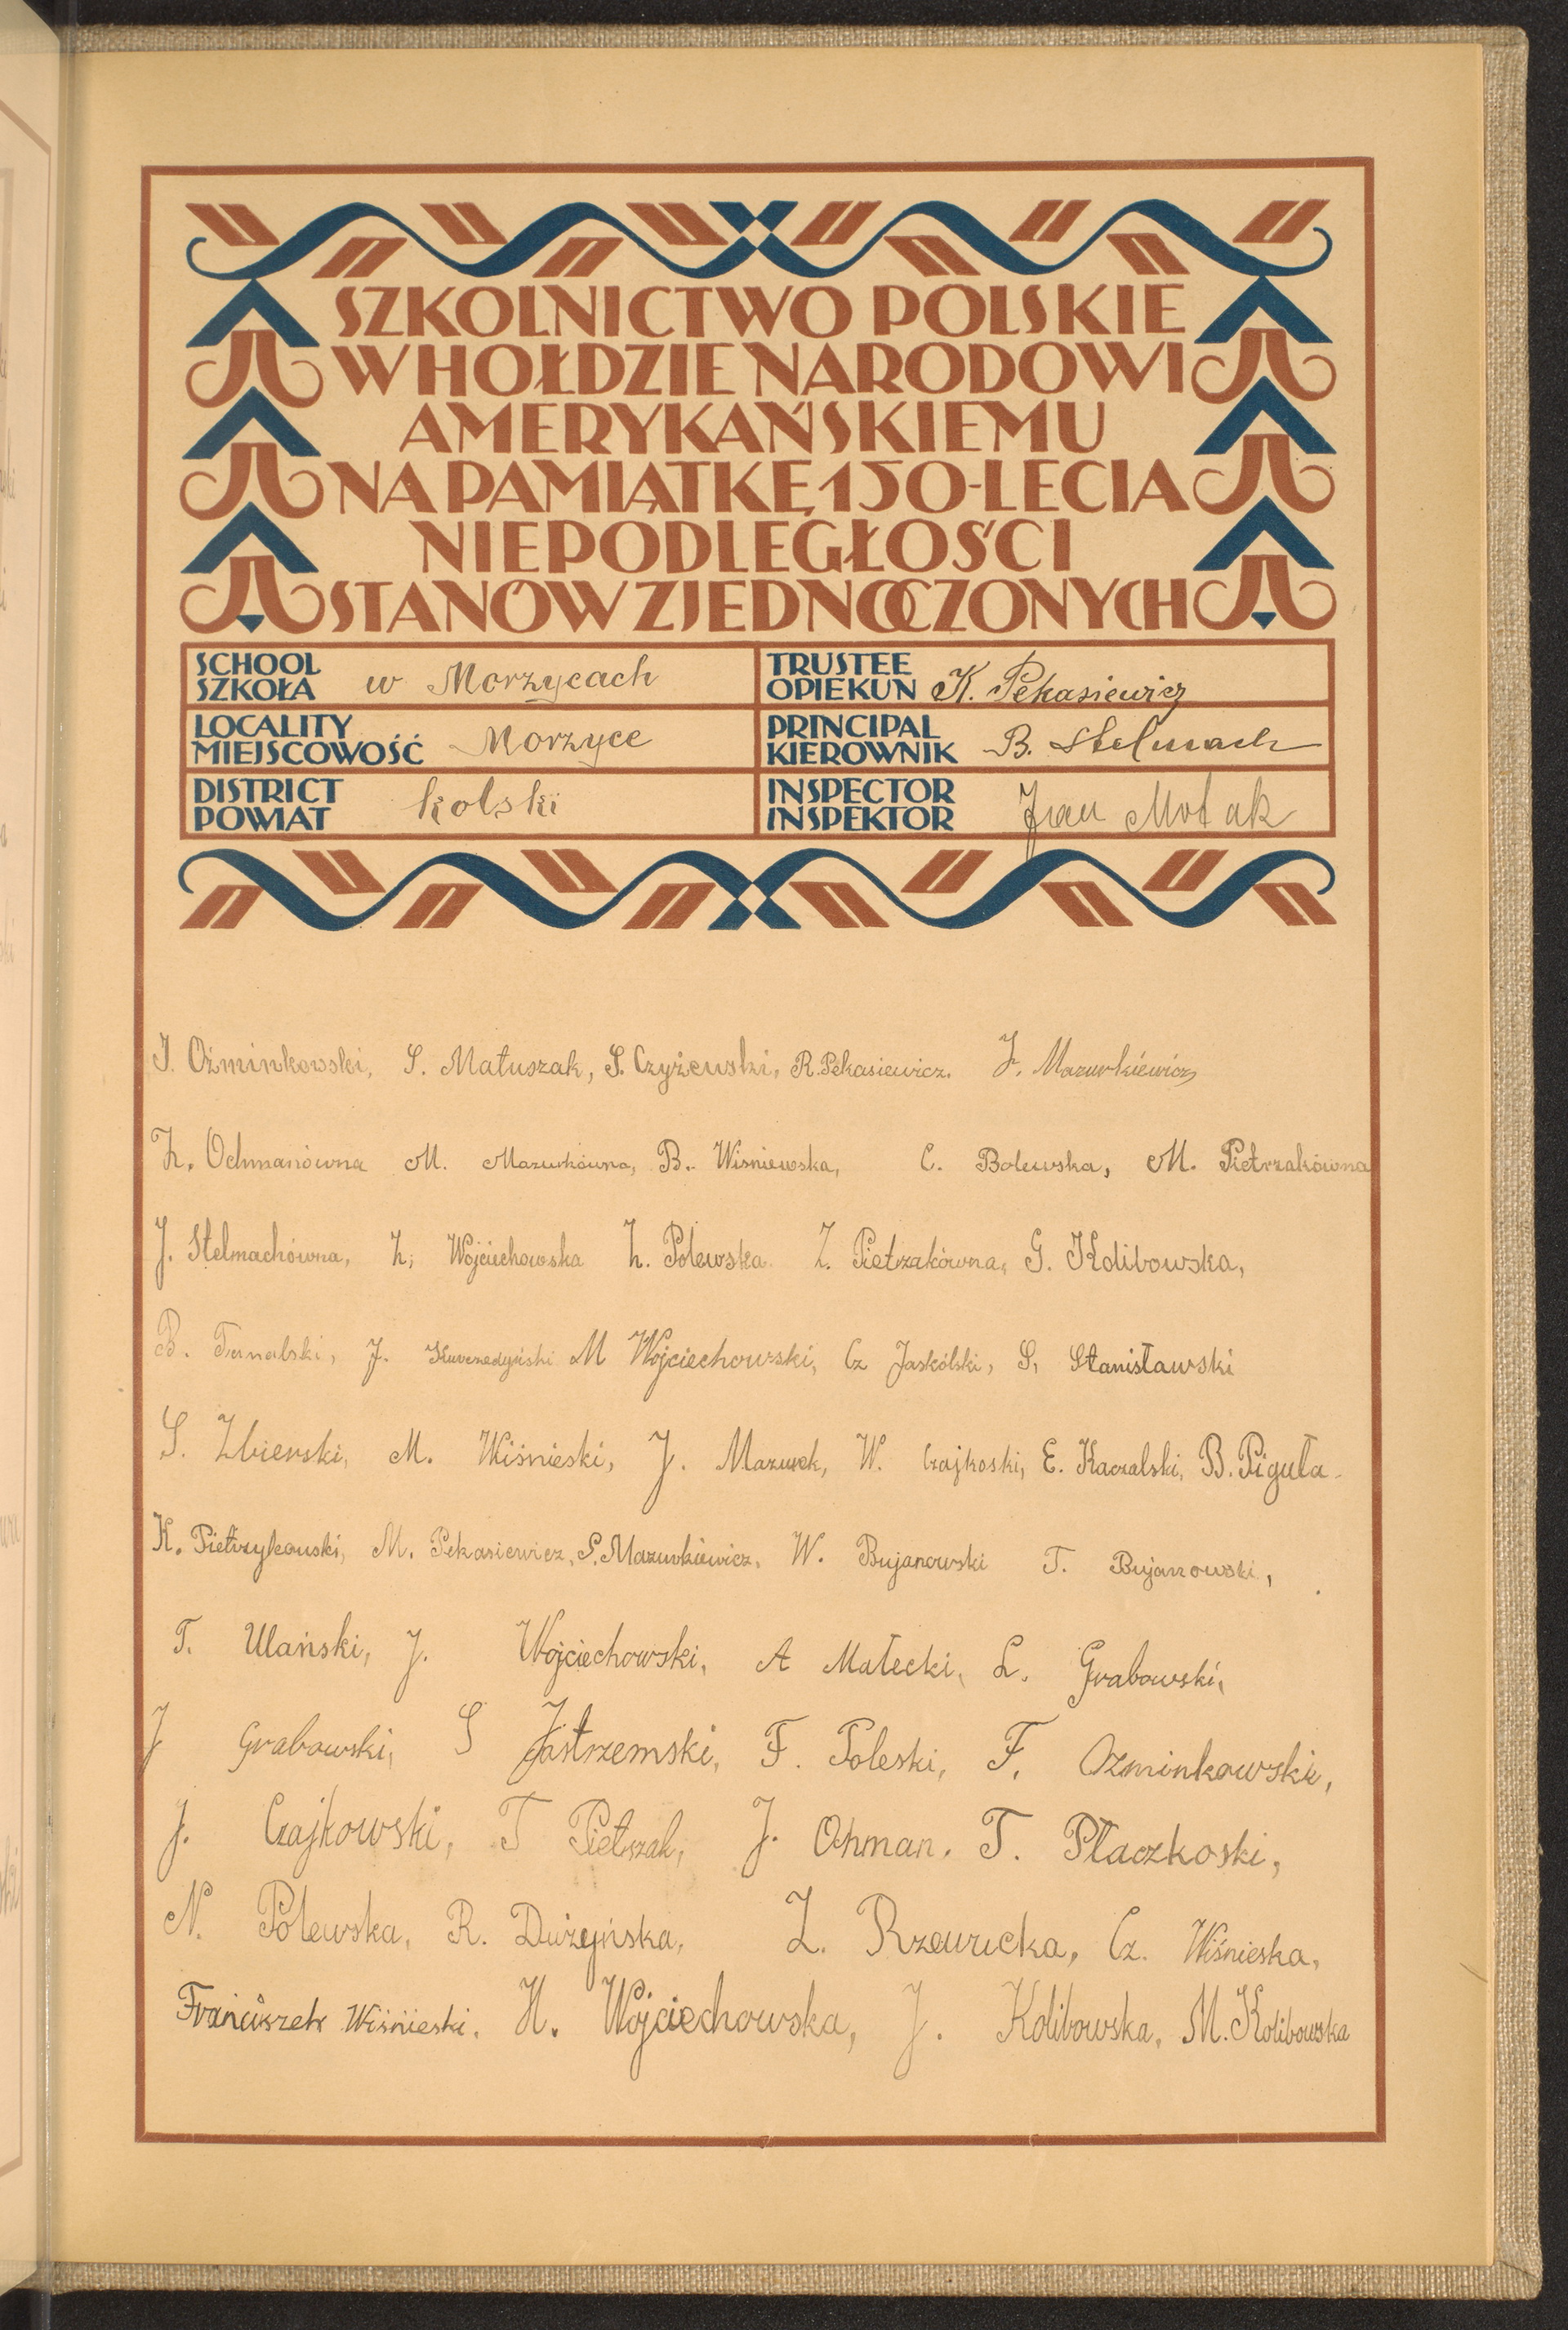 SZKOLNICTWO POLSKIE
W HOŁDZIE NARODOWI
AMERYKAŃSKIEMU
NA PAMIĄTKĘ 150-LECIA
NIEPODLEGŁOŚCI
STANÓW ZJEDNOCZONYCH
SCHOOL
SZKOŁA w Morzycach
TRUSTEE
OPIEKUN K. Pekasiewicz
LOCALITY
MIEJSCOWOŚĆ Morzyce
PRINCIPAL
KIEROWNIK B. Stelmach
DISTRICT
POWIAT kolski
INSPECTOR
INSPEKTOR Jan
J. Oźminkowski, S. Matuszak, S. Czyżewski, R. Pekasiewicz. J. Mazurkiewicz
H. Ochmanówna M. Mazurkówna, B. Wisniewska, C. Bolewska, M. Pietrzakówna
J. Stelmachówna, H. Wojciechowska H. Polewska Z. Pietrzakówna, G. Kolibowska,
B. J. M Wojciechowski, Cz Jaskólski, S, Stanisławski
S. Zbierski, M. Wiśnieski, J. Mazurek, W. Czajkoski, E. Kaczalski, B. Piguła.
K. Pietrzykowski, M. Pekasiewicz, S. Mazurkiewicz, W. Bujanowski T. Bujanowski,
T. Ulański, J. Wojciechowski, A Małecki, L. Grabowski,
J Grabowski, S Jastrzemski, F. Poleski, F. Ozminkowski,
J. Czajkowski, T Pietrzak, J. Ohman. T. Płaczkoski,
N. Polewska, R. Dużyńska, Z. Rzewucka, Cz. Wiśnieska,
Franciszek Wiśnieski, H. Wojciechowska, J. Kolibowska, M. Kolibowska